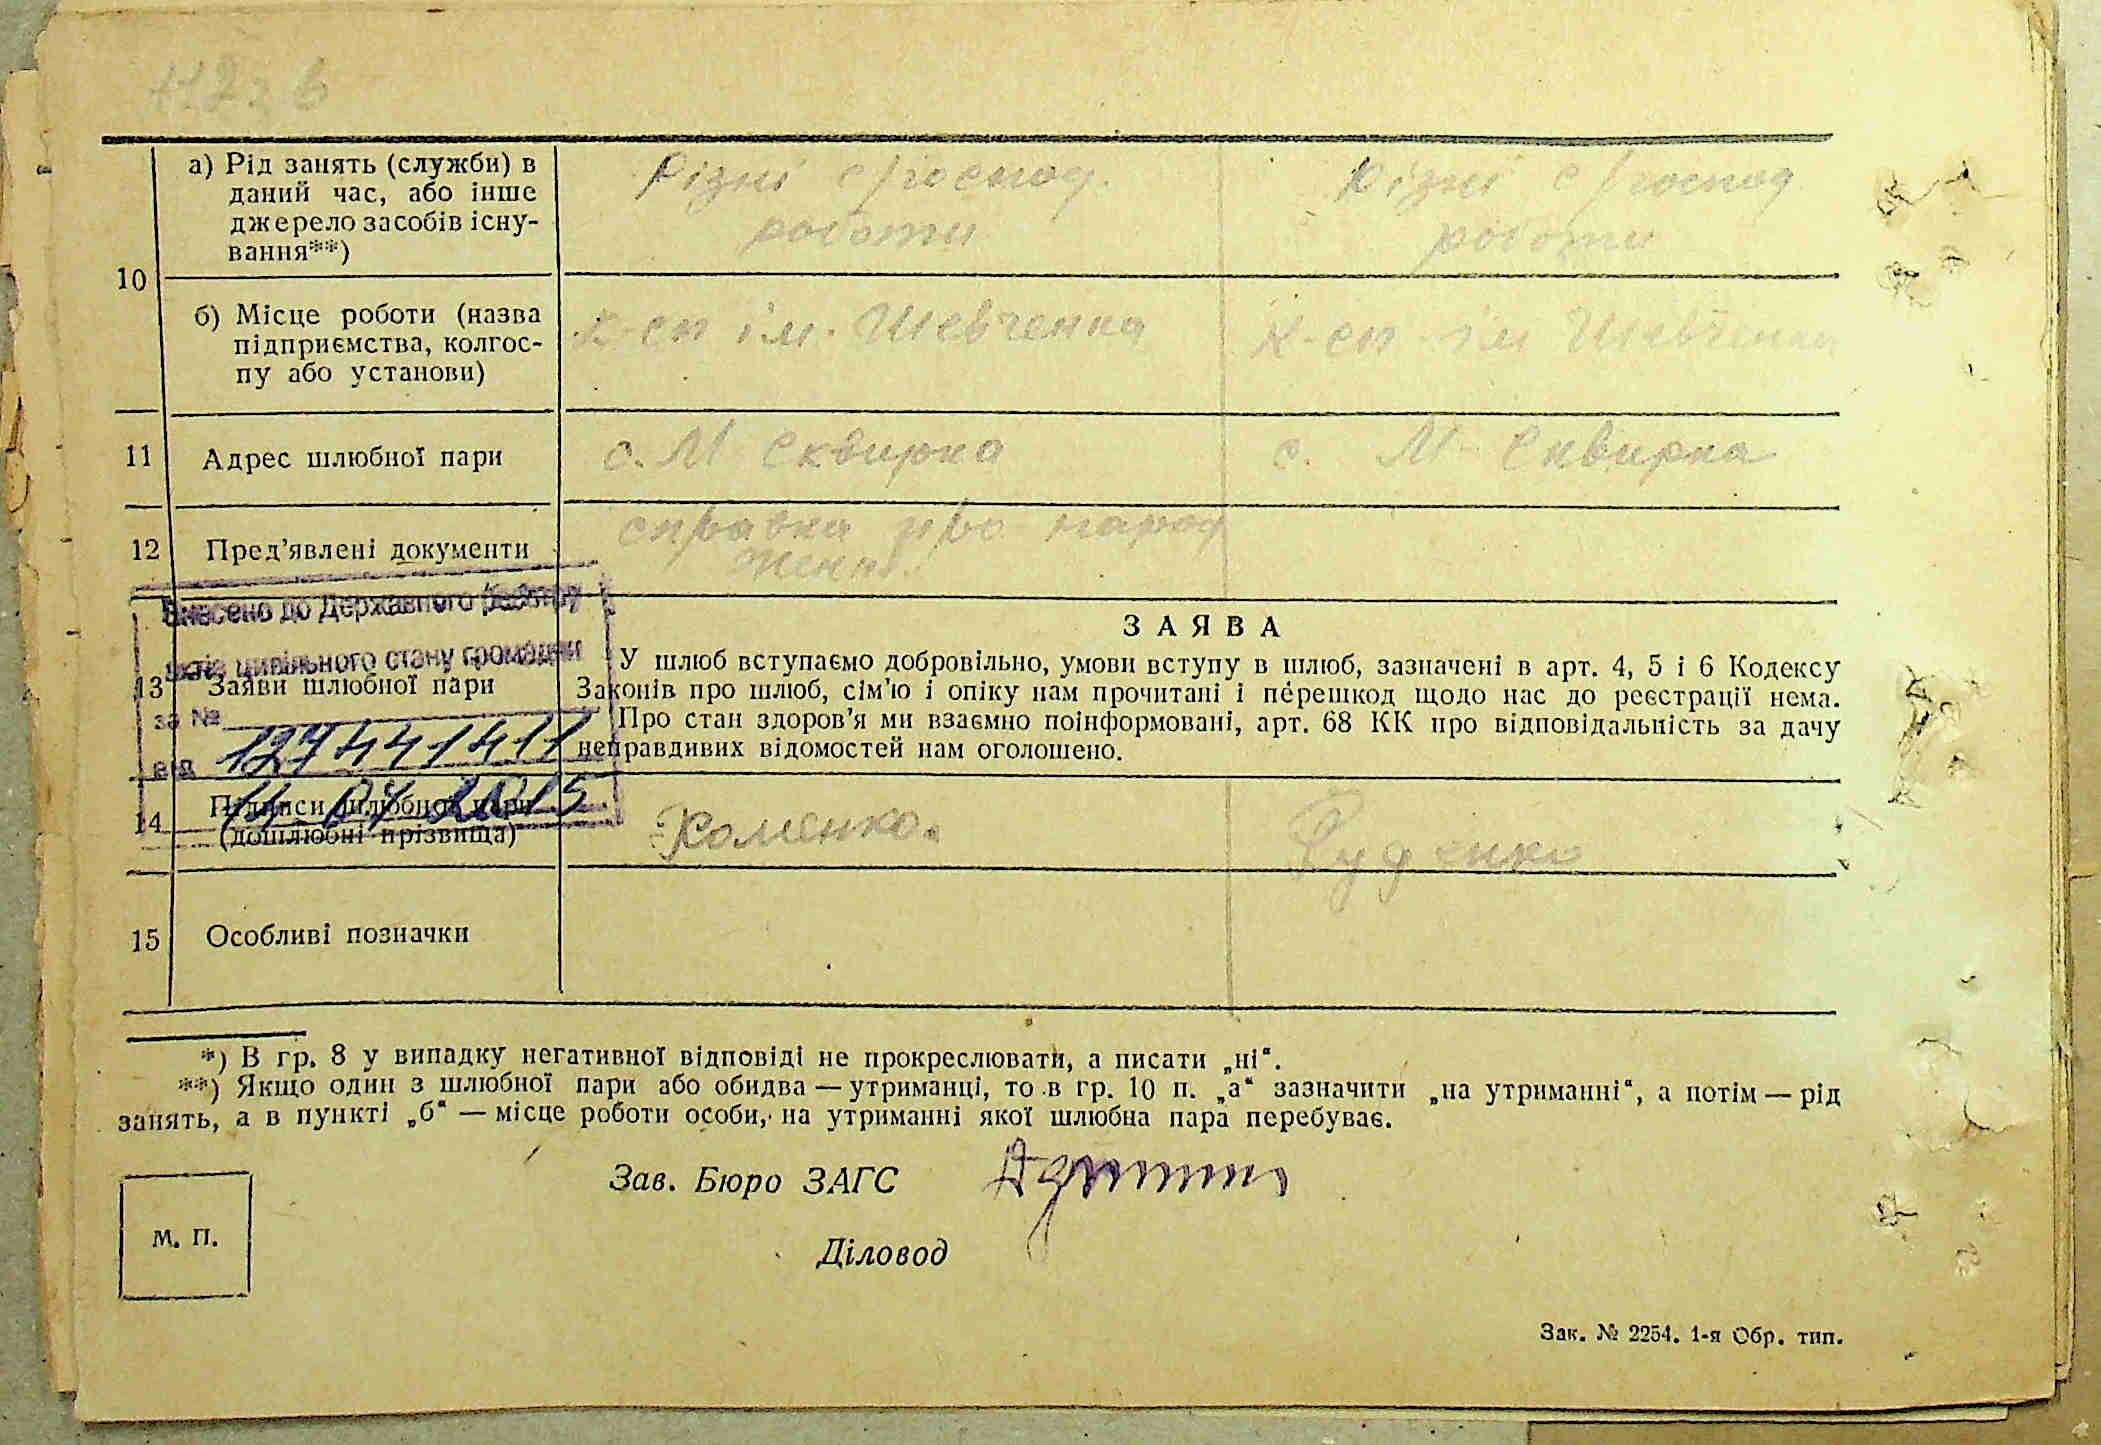 10
а) Рід занять (служби) в
даний час, або інше
джерело засобів існу-
вання**)
Різні с/госпад.
роботи
Різні с/госпад
роботи
б) Місце роботи (назва
підприємства, колгос-
пу або установи)
к-сп ім. Шевченка
к-сп ім Шевченка
11
Адрес шлюбної пари
с. М Сквирка
с. М-Сквирка
12
Пред’явлені документи
справка про народ
ження
Внесено до Державного реєстру
актів цивільного стану громадян
за № 127441411
від 14 07 2015
13
Заяви шлюбної пари
ЗАЯВА
У шлюб вступаємо добровільно, умови вступу в шлюб, зазначені в арт. 4, 5 і 6 Кодексу
Законів про шлюб, сім’ю і опіку нам прочитані і перешкод щодо нас до реєстрації нема.
Про стан здоров’я ми взаємно поінформовані, арт. 68 КК про відповідальність за дачу
неправдивих відомостей нам оголошено.
14
Підписи шлюбної пари
(дошлюбні прізвища)
Хоменко.
Руденко
15
Особливі позначки
*) В гр. 8 у випадку негативної відповіді не прокреслювати, а писати „ні“.
**) Якщо один з шлюбної пари або обидва — утриманці, то в гр. 10 п. „а“ зазначити „на утриманні“, а потім — рід
занять, а в пункті „б“ — місце роботи особи, на утриманні якої шлюбна пара перебуває.
Зав. Бюро ЗАГС
Діловод
М. П.
Зак. № 2254. 1-я Обр. тип.